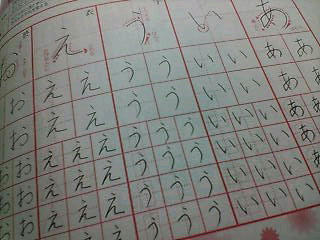 あ い う え お
あ い い う う え え お
あ い い う う え え お
あ い い い う う う え え え お
あ い い い う う う え え え お
あ い い い う う う え え え お